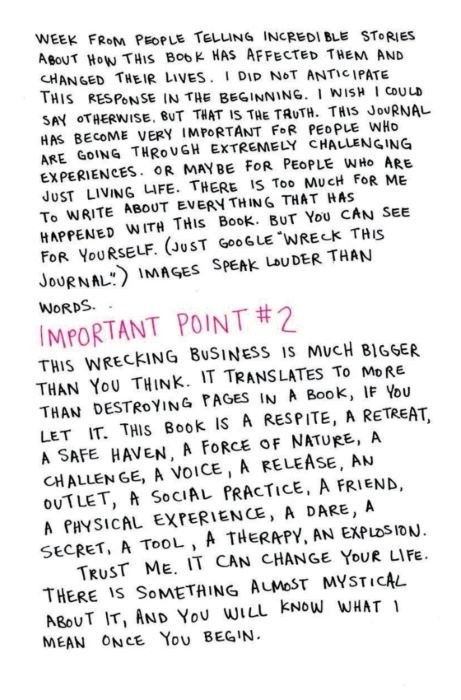 WEEK FROM PEOPLE TELLING INCREDIBLE STORIES
ABOUT HOW THIS BOOK HAS AFFECTED THEM AND
CHANGED THEIR LIVES. I DID NOT ANTICIPATE
THIS RESPONSE IN THE BEGINNING. I WISH I COULD
SAY OTHERWISE, BUT THAT IS THE TRUTH. THIS JOURNAL
HAS BECOME VERY IMPORTANT FOR PEOPLE WHO
ARE GOING THROUGH EXTREMELY CHALLENGING
EXPERIENCES. OR MAYBE FOR PEOPLE WHO ARE
JUST LIVING LIFE. THERE IS TOO MUCH FOR ME
TO WRITE ABOUT EVERYTHING THAT HAS
HAPPENED WITH THIS BOOK. BUT YOU CAN SEE
FOR YOURSELF. (JUST GOOGLE "WRECK THIS
JOURNAL".) IMAGES SPEAK LOUDER THAN
WORDS.
IMPORTANT POINT #2
THIS WRECKING BUSINESS IS MUCH BIGGER
THAN YOU THINK. IT TRANSLATES TO MORE
THAN DESTROYING PAGES IN A BOOK, IF YOU
LET IT. THIS BOOK IS A RESPITE, A RETREAT,
A SAFE HAVEN, A FORCE OF NATURE, A
CHALLENGE, A VOICE, A RELEASE, AN
OUTLET, A SOCIAL PRACTICE, A FRIEND,
A PHYSICAL EXPERIENCE, A DARE, A
SECRET, A TOOL, A THERAPY, AN EXPLOSION.
TRUST ME. IT CAN CHANGE YOUR LIFE.
THERE IS SOMETHING ALMOST MYSTICAL
ABOUT IT, AND YOU WILL KNOW WHAT I
MEAN ONCE YOU BEGIN.